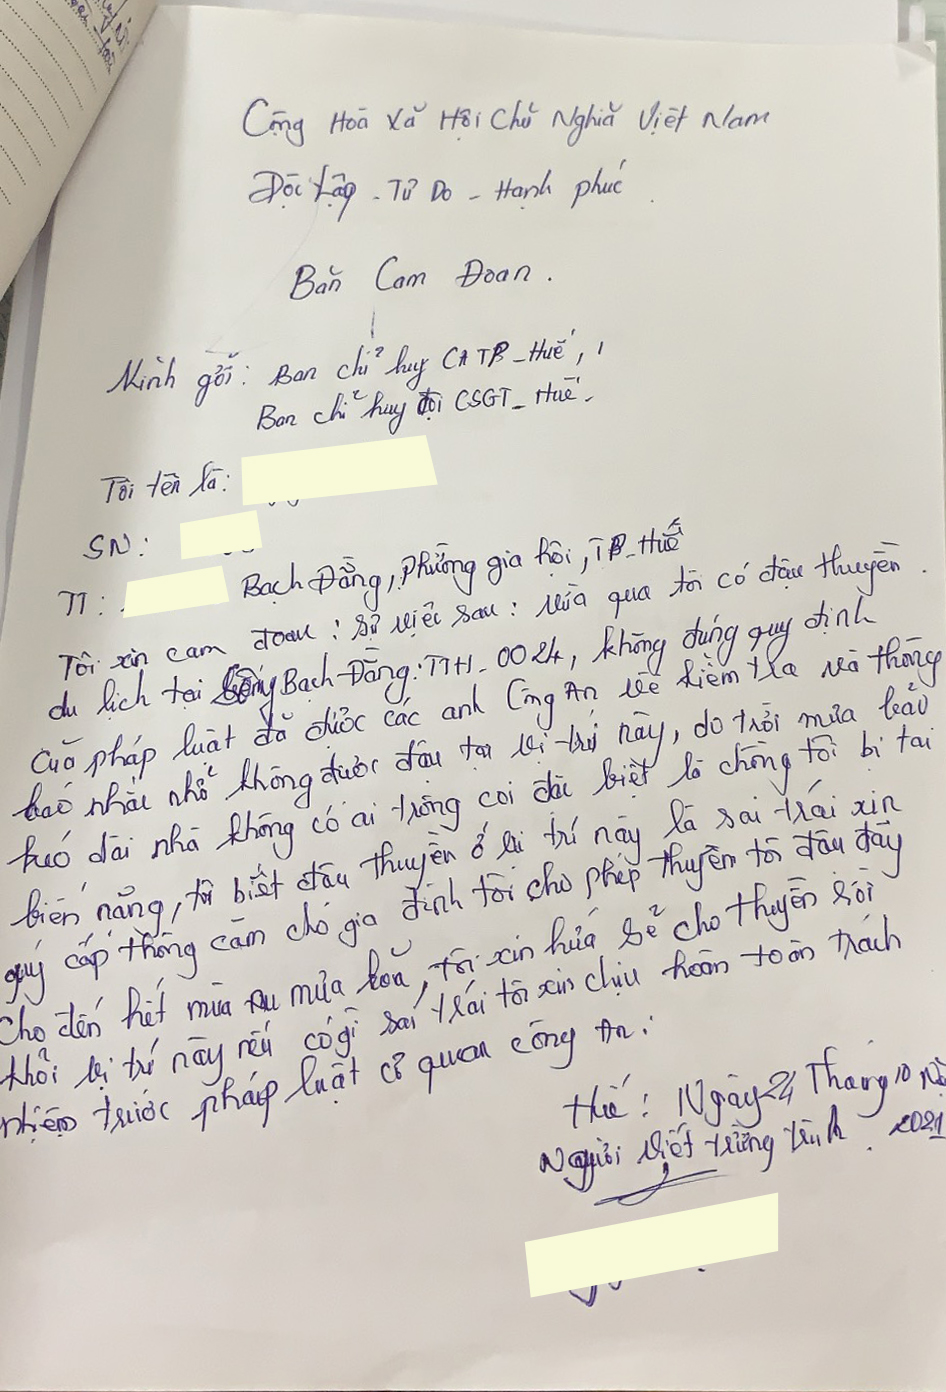 Cộng Hoà Xã Hội Chủ Nghĩa Việt Nam
Độc Lập - Tự Do - Hạnh phúc
Bản Cam Đoan.
Kính gởi: Ban chỉ huy CATP - Huế,
Ban chỉ huy đội CSGT - Huế.
Tôi tên là:
SN:
TT: Bạch Đằng, phường gia hội, TP - Huế
Tôi xin cam đoan: sự việc sau: vừa qua tôi có đậu thuyền
du lịch tại Bạch Đằng: TTH - 0024, không đúng quy định
của pháp luật đã được các anh Công An về kiểm tra và thông
báo nhắc nhở không được đậu tại vị trí này, do trời mưa bảo
kéo dài nhà không có ai trông coi đặc biệt là chồng tôi bị tai
biến nặng, tôi biết đậu thuyền ở vị trí này là sai trái xin
quý cấp thông cảm cho gia đình tôi cho phép thuyền tôi đậu đây
cho đến hết mùa mưa, tôi xin hứa sẽ cho thuyền rời
khỏi vị trí này nếu có gì sai trái tôi xin chịu hoàn toàn trách
nhiệm trước pháp luật cơ quan công An.
Huế: Ngày 24 Tháng 10
Người viết tường trình 2021